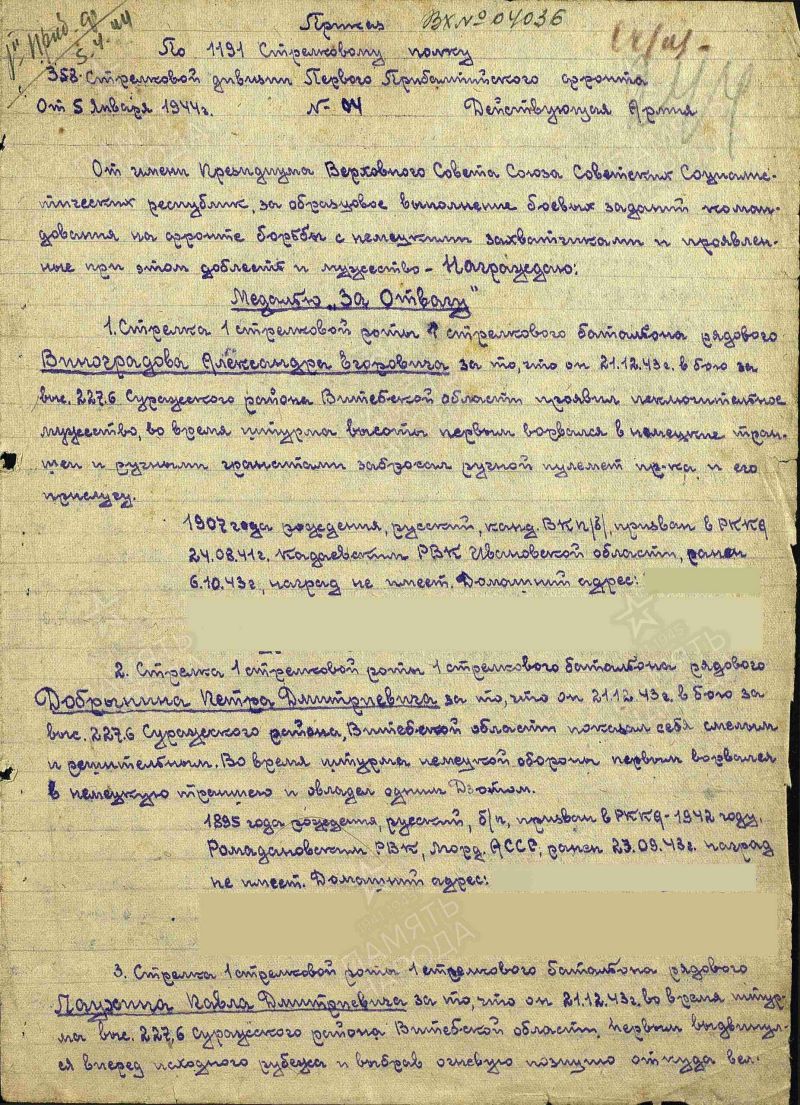 Приказ ВХ№ 04036
1й Приб. Фр
5.1.44
По 1191 Стрелковому полку
358 Стрелковой дивизии Первого Прибалтийского фронта
От 5 Января 1944г. №-04 Действующая Армия
От имени Президиума Верховного Совета Союза Советских Социалис-
тических республик, за образцовое выполнение боевых заданий коман-
дования на фронте борьбы с немецкими захватчиками и проявлен-
ные при этом доблесть и мужество - Награждаю:
Медалью „За Отвагу"
1. Стрелка 1 стрелковой роты 1 стрелкового батальона рядового
Виноградова Александра Егоровича за то, что он 21.12.43г. в бою за
выс. 227,6 Суражского района Витебской области проявил исключительное
мужество, во время штурма высоты первым ворвался в немецкие тран-
шеи и ручными гранатами забросал ручной пулемет пр-ка и его
прислугу.
1907 года рождения, русский, канд. ВКП/б/, призван в РККА
24.08.41г. Кадаевским РВК Ивановской области, ранен
6.10.43г., наград не имеет. Домашний адрес:
2. Стрелка 1 стрелковой роты 1 стрелкового батальона рядового
Добрынина Петра Дмитриевича за то, что он 21.12.43г. в бою за
выс. 227,6 Суражского района, Витебской области показал себя смелым
и решительным. Во время штурма немецкой обороны первым ворвался
в немецкую траншею и овладел одним Дзотом.
1895 года рождения, русский, б/п, призван в РККА - 1942 году,
Ромадановским РВК, Морд. АССР, ранен 23.09.43г. наград
не имеет. Домашний адрес:
3. Стрелка 1 стрелковой роты 1 стрелкового батальона рядового
Паухина Павла Дмитриевича за то, что он 21.12.43г. во время штур-
ма выс. 227,6 Суражского района Витебской области, первым выдвинул-
ся вперед исходного рубежа и выбрав огневую позицию откуда вел-
ПАМЯТЬ
НАРОДА